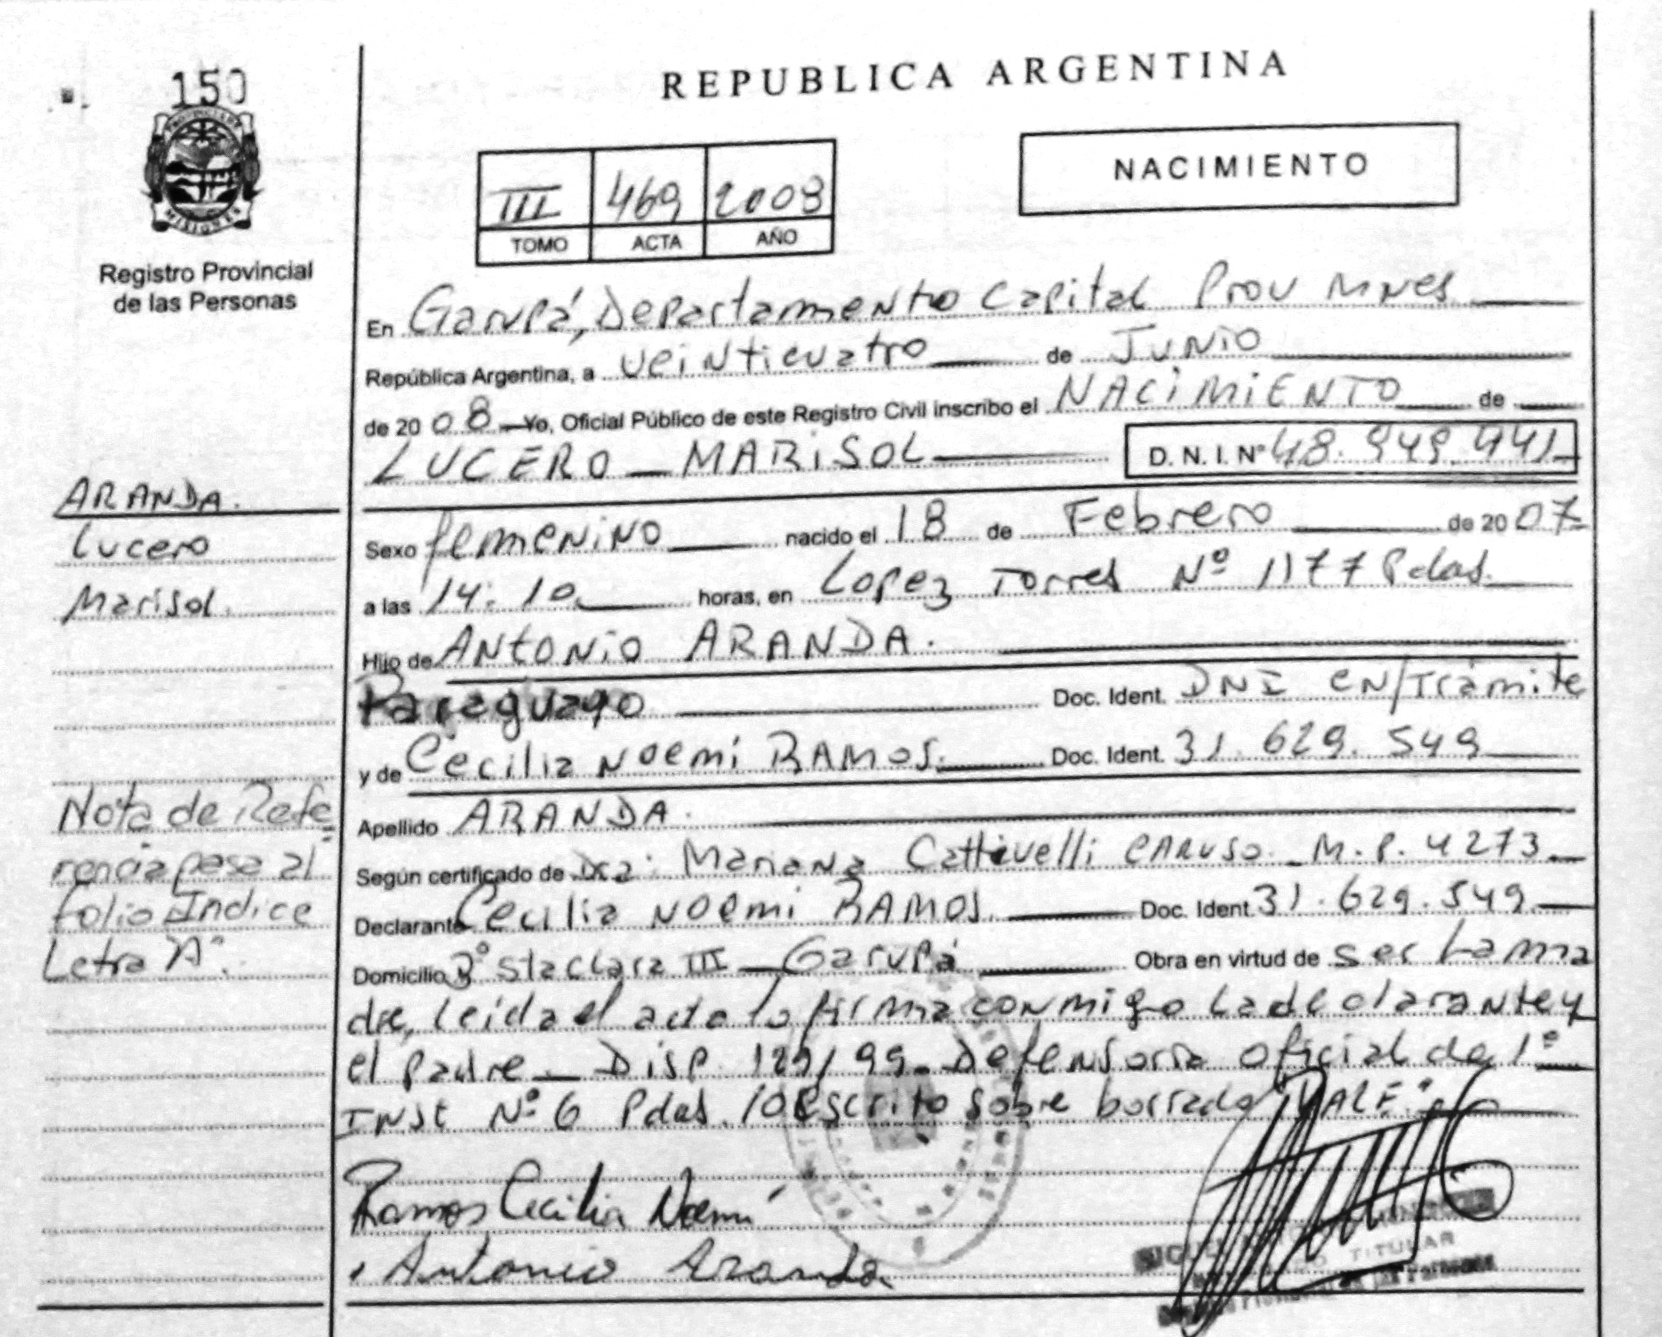 150
PROVINCIA DE
MISIONES
Registro Provincial
de las Personas
REPUBLICA ARGENTINA
III 469 2008
TOMO ACTA AÑO
NACIMIENTO
En Garupá, Departamento Capital Prov Mnes
República Argentina, a veinticuatro de Junio
de 2008 Yo, Oficial Público de este Registro Civil inscribo el NACIMIENTO de
LUCERO MARISOL D. N. I. Nº 48.949.941
Sexo femenino nacido el 18 de Febrero de 2007
a las 14:10 horas, en Lopez Torres Nº 1177 Pdas.
Hijo de Antonio ARANDA.
Paraguayo Doc. Ident. DNI en/Trámite
y de Cecilia Noemí RAMOS. Doc. Ident. 31.629.549
Apellido ARANDA.
Según certificado de Dra: Mariana Cattivelli Caruso. M.P. 4273
Declarante Cecilia Noemi RAMOS. Doc. Ident. 31.629.549
Domicilio Bº Sta Clara III Garupá Obra en virtud de ser La ma
dre, leída el acta la firma conmigo La declarante y
el padre _ Disp. 129/99. Defensoria oficial de 1º
Inst Nº 6 Pdas. Escrito sobre borrado VALE.
Ramos Cecilia Noemí
Antonio Aranda
TITULAR
ARANDA.
Lucero
Marisol.
Nota de Refe
rencia pasa al
folio Indice
Letra "A".